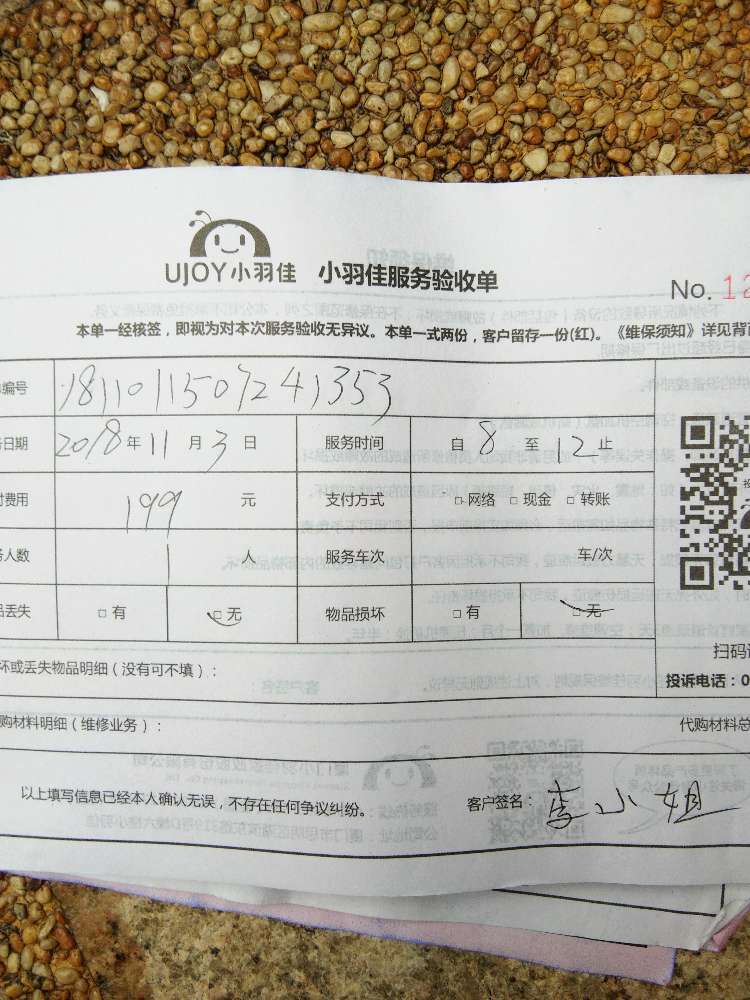 UJOY小羽佳 小羽佳服务验收单
No. 12
本单一经核签，即视为对本次服务验收无异议。本单一式两份，客户留存一份(红)。《维保须知》详见背
编号 181101150724 1353
日期 2018年11月3日 服务时间 自8至12止
费用 199元 支付方式 □网络 □现金 □转账
人数 1人 服务车次 车/次
丢失 □有 □无 物品损坏 □有 □无
坏或丢失物品明细（没有可不填）：
扫码
投诉电话：0
购材料明细（维修业务）：
代购材料总
以上填写信息已经本人确认无误，不存在任何争议纠纷。 客户签名：李小姐